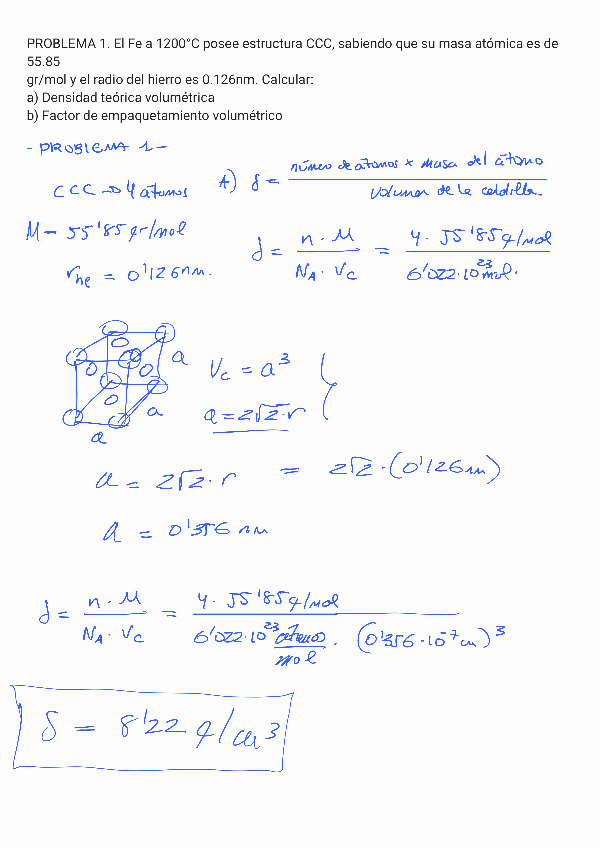 PROBLEMA 1. El Fe a 1200°C posee estructura CCC, sabiendo que su masa atómica es de
55.85
gr/mol y el radio del hierro es 0.126nm. Calcular:
a) Densidad teórica volumétrica
b) Factor de empaquetamiento volumétrico
- PROBLEMA 1 -
CCC → 4 átomos
A) δ = número de átomos × masa del átomo / volumen de la celdilla.
M - 55'85 gr/mol
r he = 0'126 nm.
d = n · M / N_A · V_C = 4 · 55'85 g/mol / 6'022 · 10^23 mol.
a
a
a
V_C = a^3
a = 2√2 · r
a = 2√2 · r = 2√2 · (0'126 nm)
a = 0'356 nm
d = n · M / N_A · V_C = 4 · 55'85 g/mol / 6'022 · 10^23 átomos/mol · (0'356 · 10^-7 cm)^3
δ = 8'22 g/cm^3